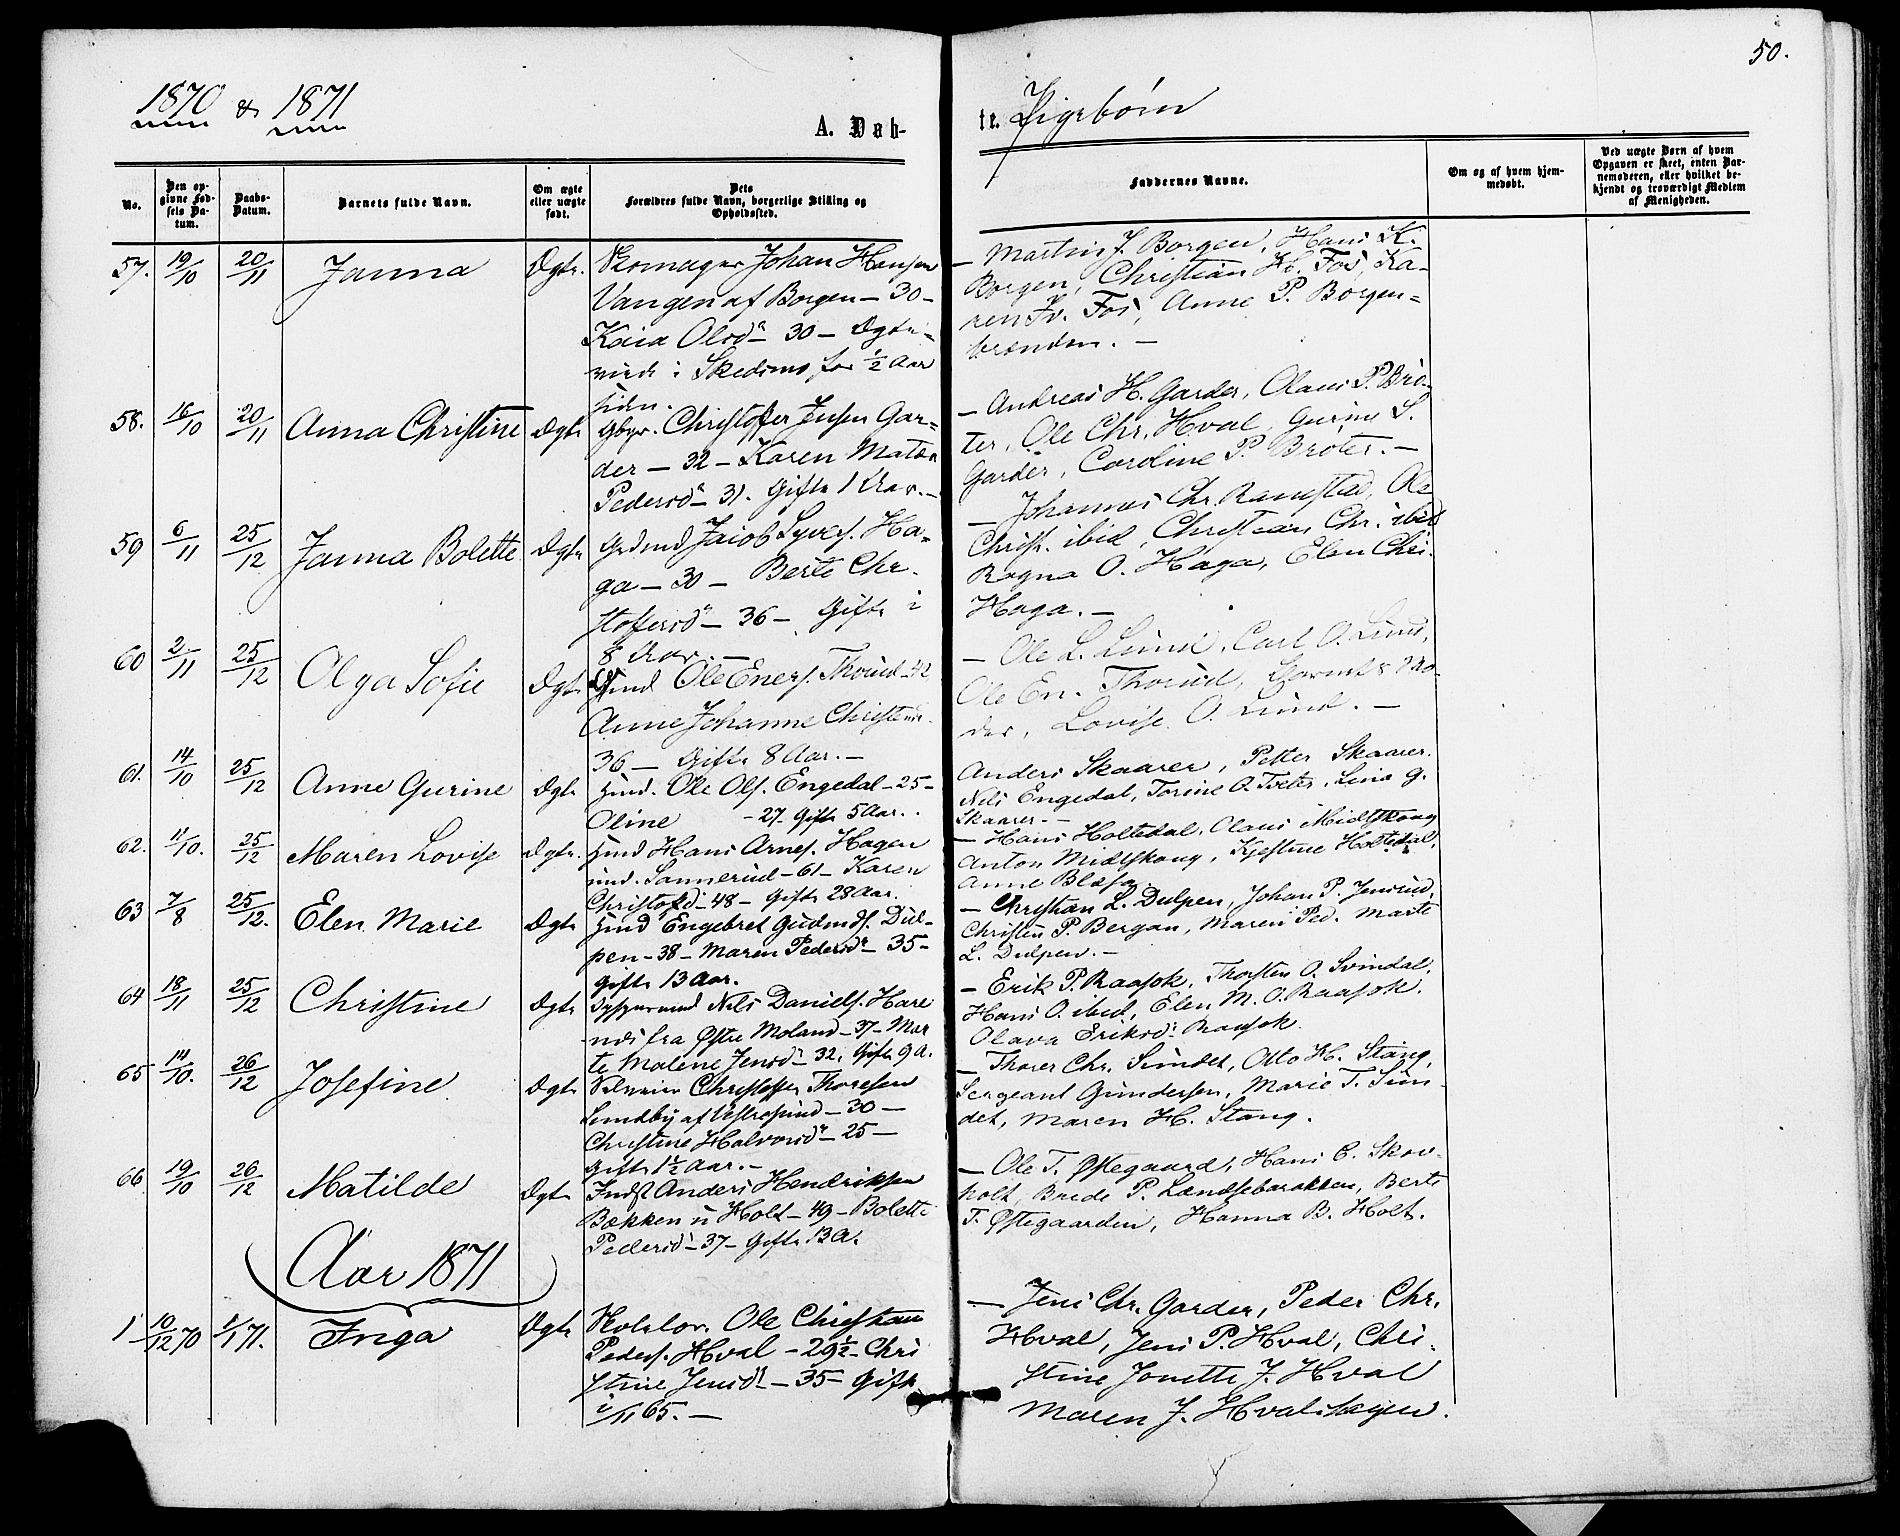 50.
1870 & 1871
A. Døb-
te. Pigebørn
No.
Den opgivne Fødsels Datum.
Daabs-Datum.
Barnets fulde Navn.
Om ægte eller uægte født.
Dets Forældres fulde Navn, borgerlige Stilling og Opholdssted.
Faddernes Navne.
Om og af hvem hjemmedøbt.
Ved uægte Børn af hvem Opgaven er skeet, enten Barnemoderen, eller hvilket bekjendt og troværdigt Medlem af Menigheden.
57. 19/10 20/11 Janna Ægte. Skomager Johan Hansen
Vangen af Borgen – 30 –
Kaia Olsd – 30 – Ægte-
viede i Skedsmo for ½ Aar
siden.
– Martin J. Borgen, Hans K.
Borgen, Christian H. Fos, Ka-
ren Fos, Anne P. Borgen-
brænden. –
58. 16/10 20/11 Anna Christine Ægte Gbgr. Christoffer Jensen Gar-
der – 32 – Karen Matea
Pedersd – 31. Gifte 1 Aar. –
– Andreas H. Garder, Olaus P. Brø-
ter, Ole Chr. Hval, Gurine S.
Garder, Caroline P. Brøter. –
59 6/11 25/12 Janna Bolette Ægte Grdmd Jacob Syvers. Ha-
ga – 30 – Berte Chr-
stofersd – 36 – Gifte i
8 Aar. –
– Johannes Chr. Ramstad, Ole
Christ. ibid, Christian Chr. ibid
Ragna O. Haga, Elen Chri.
Haga. –
60 2/11 25/12 Olga Sofie Ægte Ole Eners. Thorud – 42
Anne Johanne Christens
36 – Gifte 8 Aar. –
– Ole L. Lund, Carl O. Lund,
Ole En. Thorud, Barnets Mo-
der, Lovise O. Lund. –
61. 14/10 25/12 Anne Gurine Ægte Hmd. Ole Ols. Engedal – 25 –
Oline – 27. Gifte 5 Aar.
Anders Skaarer, Petter Skaarer.
Nils Engedal, Torine O. Tveter, Lina G.
Skaarer. –
62. 11/10. 25/12 Maren Lovise Ægte. Hmd Hans Arnes. Hagen
und. Sannerud – 61 – Karen
Christofd – 48 – Gifte 28 Aar.
– Hans Holtedal, Olaus Midtskoug
Anton Midtskoug, Kjestine Holtedal,
Anne Blæsa
63 7/8 25/12. Elen Marie Ægte Hmd Engebret Gudmds. Dul-
pen – 38 – Maren Pedersd – 35 –
Gifte 13 Aar.
– Christian L. Dulpen, Johan P. Jensrud,
Christen P. Bergan, Maren Ped. Marte
L. Dulpen. –
64 18/11 25/12 Christine Ægte Nils Daniels. Hare
fra Østre Moland – 37 – Mar
te Malene Jensd – 32. Gifte 9 A.
– Erik P. Raasok, Thorsten O. Svindal,
Hans O. ibid, Elen M. O. Raasok.
Olava Eriksd Raasok.
65 14/10. 26/12 Josefine Ægte Christoffer Thoresen
Sundby af Vestresund – 30 –
Christine Halvorsd – 25 –
Gifte 1½ Aar. –
– Thorer Chr. Sundet, Otto H. Stang,
Sergeant Gundersen, Marie T. Sun-
det, Maren H. Stang.
66 19/10 26/12 Matilde Ægte Indst Anders Hendriksen
Bækken u Holt – 49 – Bolette
Pedersd – 37 – Gifte 13 A.
– Ole T. Østegaard, Hans C. Skov-
holt, Brede P. Lændsebarakken, Berte
T. Østegaarden, Hanna B. Holt.
Aar 1871
1 10/12 70 1/1 71. Inga Ægte Skolelær. Ole Christian
Peders. Hval – 29½ – Chri
stine Jensd – 35 – Gift
/11 65. –
– Jens Chr. Garder, Peder Chr.
Hval, Jens P. Hval, Chri-
stine Jonette J. Hval
Maren J. Hvalshagen.